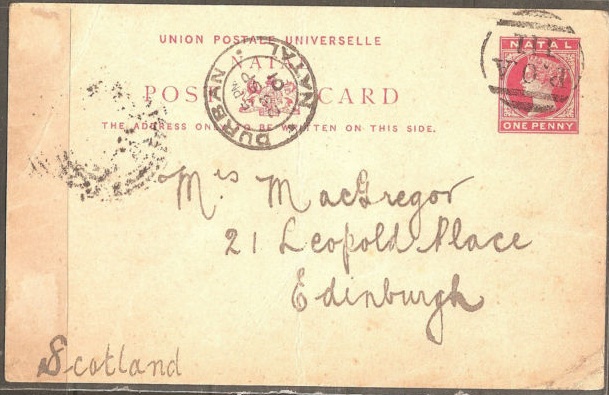 UNION POSTALE UNIVERSELLE
NATAL
POST CARD
THE ADDRESS ONLY TO BE WRITTEN ON THIS SIDE.
DURBAN NATAL
NATAL
ONE PENNY
Mrs MacGregor
21 Leopold Place
Edinburgh
Scotland